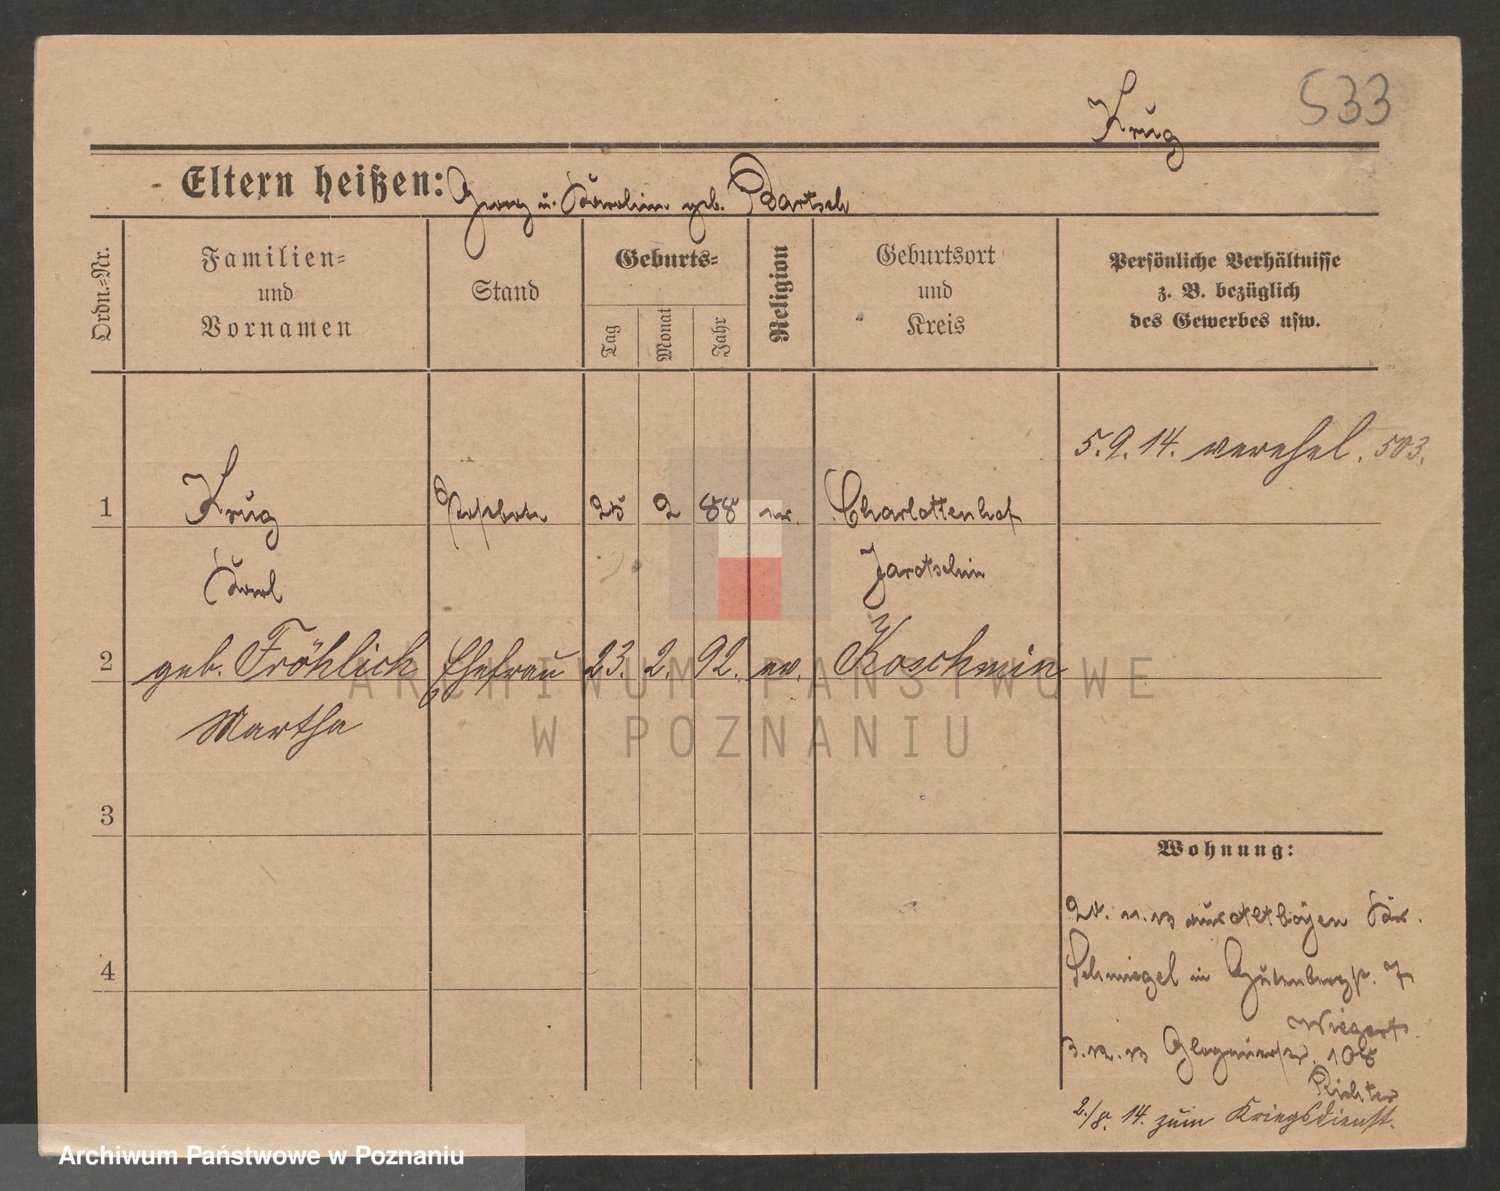 533
Krug
Eltern heißen: Georg u. Karolin geb. Bartsch
Ordn.-Nr.
Familien-
und
Vornamen
Stand
Geburts-
Tag
Monat
Jahr
Religion
Geburtsort
und
Kreis
Persönliche Verhältnisse
z. B. bezüglich
des Gewerbes usw.
5.9.14. verehel. 503.
1 Krug 25 2 88 ev. Charlottenhof
Karl Jarotschin
2 geb. Fröhlich Ehefrau 23. 2. 92. ev. Koschmin
Martha
3
Wohnung:
aus Altboyen Kr.
4
Schmiegel in Gutenbergstr. 7
Wiegert
Glogauerstr. 108
Richter
2./8. 14. zum Kriegsdienst.
ARCHIWUM PAŃSTWOWE
W POZNANIU
Archiwum Państwowe w Poznaniu